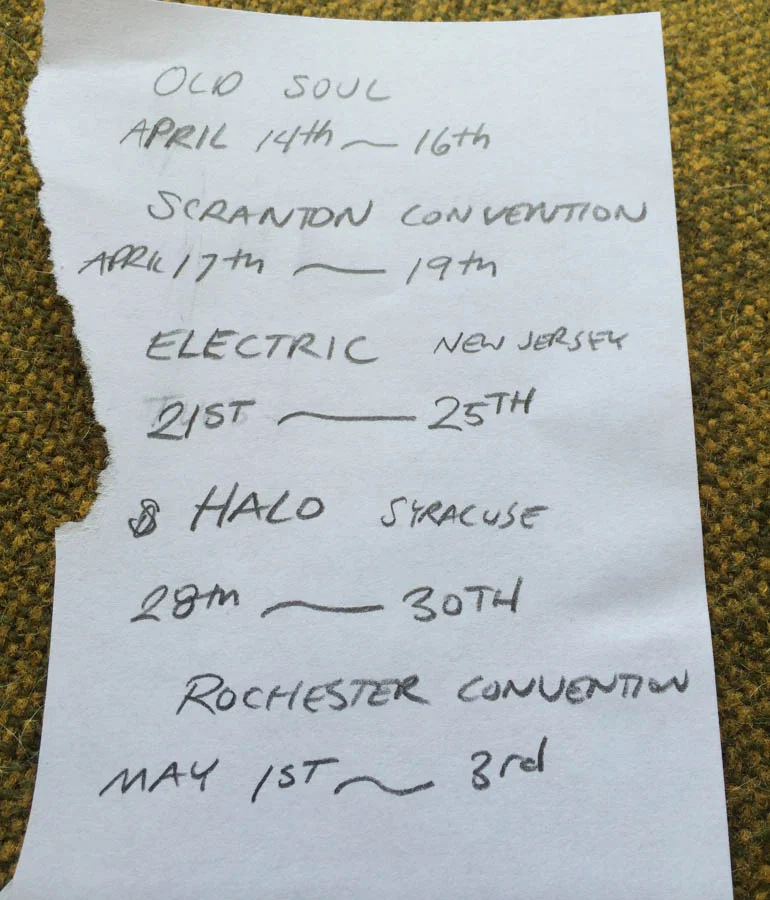 OLD SOUL
APRIL 14th ~ 16th
SCRANTON CONVENTION
APRIL 17th ~ 19th
ELECTRIC NEW JERSEY
21ST ~ 25TH
HALO SYRACUSE
28th ~ 30TH
ROCHESTER CONVENTION
MAY 1ST ~ 3rd